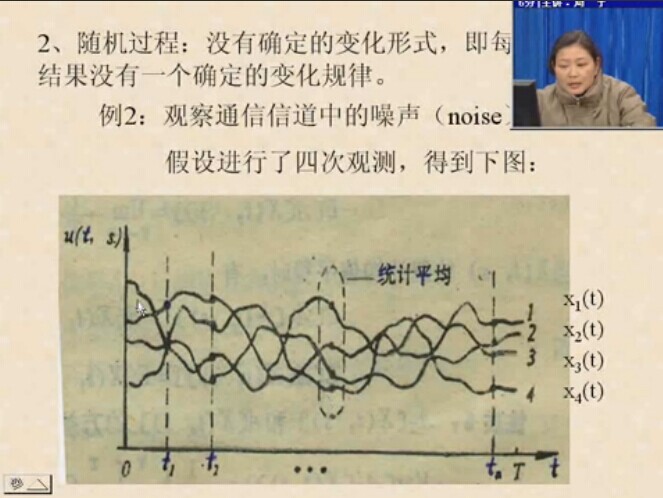 2、随机过程：没有确定的变化形式，即每
结果没有一个确定的变化规律。
例2：观察通信信道中的噪声（noise）
假设进行了四次观测，得到下图：
u(t, s)
统计平均
1
2
3
4
x₁(t)
x₂(t)
x₃(t)
x₄(t)
0 t₁ t₂ ••• tₙ T t